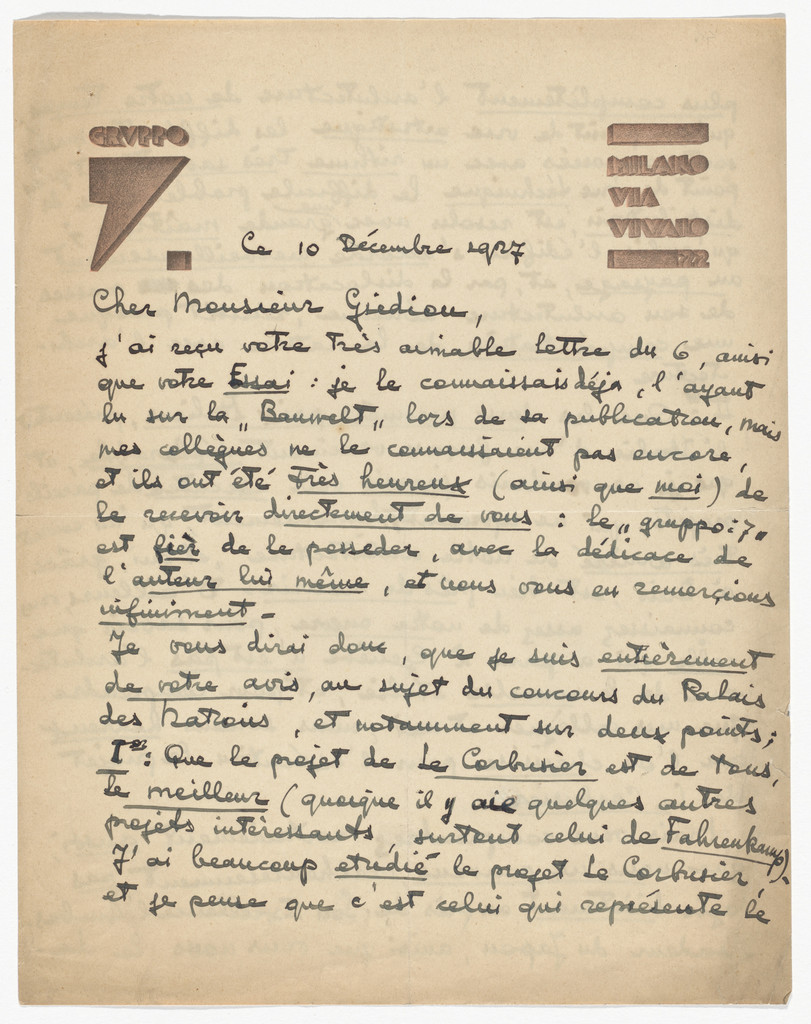 GRVPPO
7.
MILANO
VIA
VIVAIO
22
Ce 10 Décembre 1927
Cher Monsieur Giedion,
j'ai reçu votre très aimable lettre du 6, ainsi
que votre Essai : je le connaissais déja, l'ayant
lu sur la „Bauwelt„ lors de sa publication, mais
mes collègues ne le connaissaient pas encore,
et ils ont été très heureux (ainsi que moi) de
le recevoir directement de vous : le „gruppo:7„
est fièr de le posseder, avec la dédicace de
l'auteur lui même, et nous vous en remerçions
infiniment -
Je vous dirai donc, que je suis entièrement
de votre avis, au sujet du concours du Palais
des Nations, et notamment sur deux points;
I°: Que le projet de Le Corbusier est de tous,
le meilleur (quoique il y aie quelques autres
projets intéressants, surtout celui de Fahrenkamp).
J'ai beaucoup etudié le projet Le Corbusier,
et je pense que c'est celui qui représente le